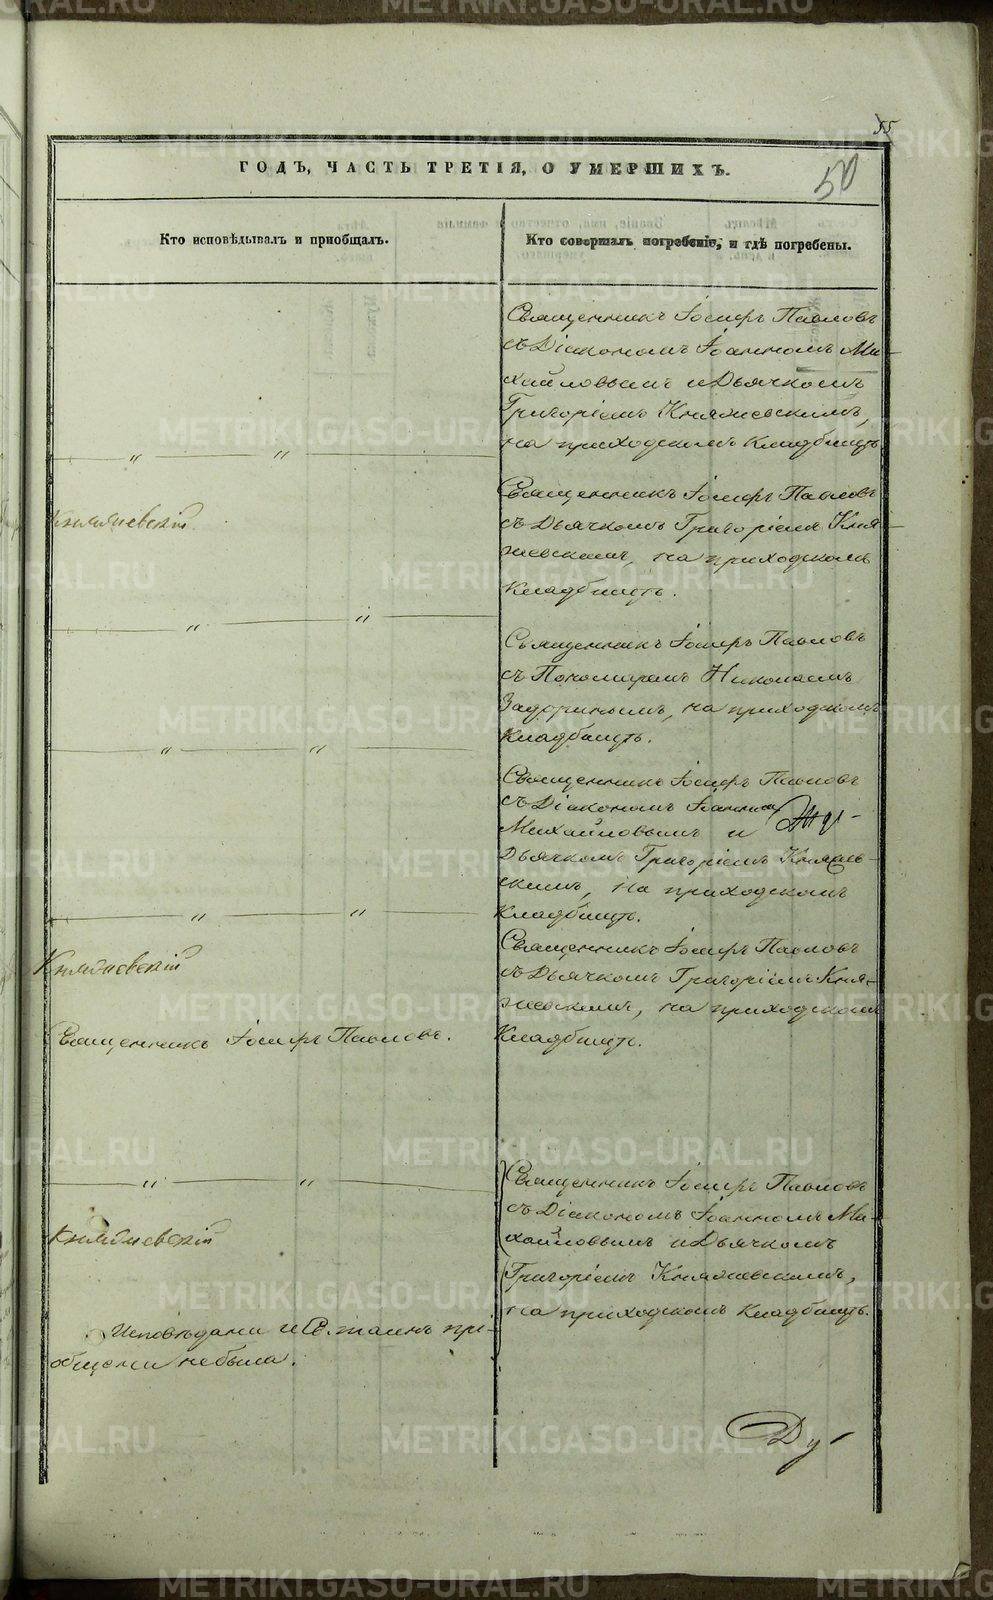 55
50
ГОДЪ, ЧАСТЬ ТРЕТІЯ, О УМЕРШИХЪ.
Кто исповѣдывалъ и пріобщалъ.
Кто совершалъ погребеніе, и гдѣ погребены.
Священникъ Іосифъ Павловъ
съ Діакономъ Іоанномъ Ми-
хайловымъ и Дьячкомъ
Григоріемъ Княжевскимъ,
на приходскомъ кладбищѣ
Княжевскій
Священникъ Іосифъ Павловъ
съ Дьячкомъ Григоріемъ Кня-
жевскимъ, на приходскомъ
кладбищѣ.
Священникъ Іосифъ Павловъ
съ Пономаремъ Николаемъ
Задоринымъ, на приходскомъ
кладбищѣ.
Священникъ Іосифъ Павловъ
съ Діакономъ Іоанномъ
Михайловымъ и
Дьячкомъ Григоріемъ Княжев-
скимъ, на приходскомъ
кладбищѣ.
Княжевскій
Священникъ Іосифъ Павловъ
съ Дьячкомъ Григоріемъ Кня-
жевскимъ, на приходскомъ
кладбищѣ.
Священникъ Іосифъ Павловъ.
Священникъ Іосифъ Павловъ
съ Діакономъ Іоанномъ Ми-
хайловымъ и Дьячкомъ
Григоріемъ Княжевскимъ,
на приходскомъ кладбищѣ.
Княжевскій
Исповѣданы и Св. таинъ прі-
общены небыла.
Ду-
METRIKI.GASO-URAL.RU